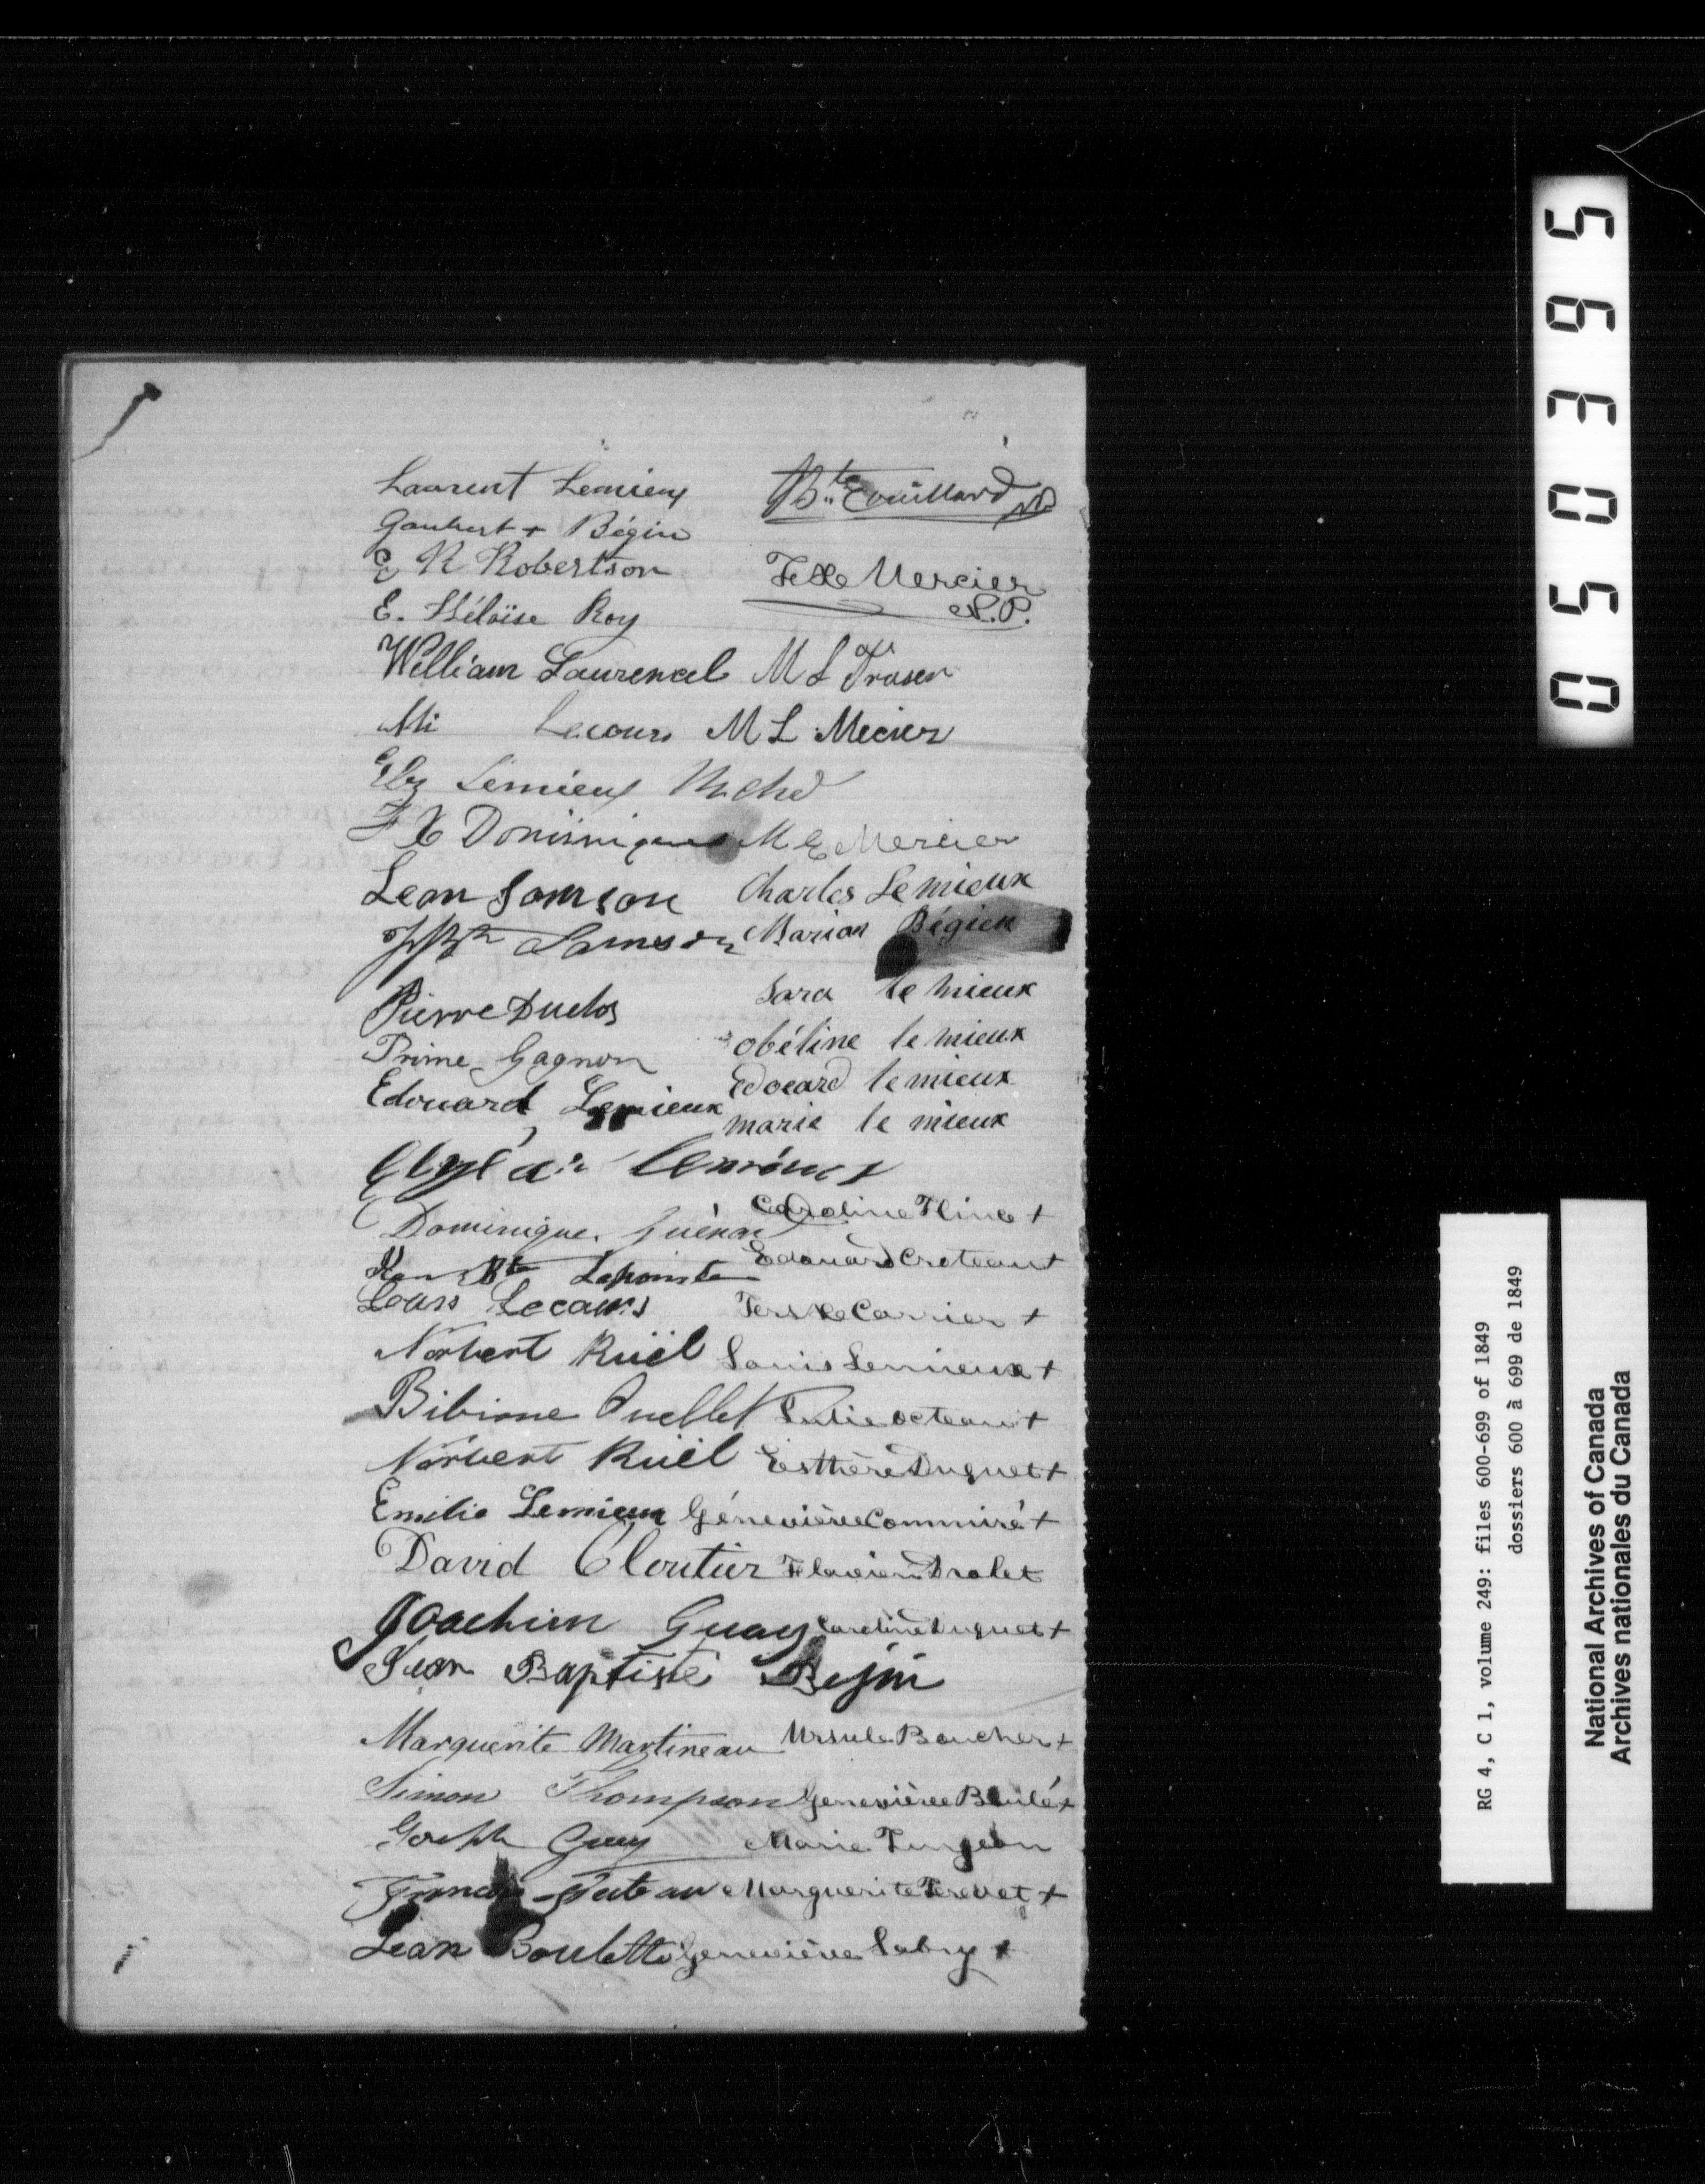 Laurent Lemieux
Gaubert + Bégin
E R Robertson
E. Héloïse Roy
William Laurencel
Lecours
Elz Lemieux
F X Dominique
Lean Samson
Samson
Pierre Duclos
Prime Gagnon
Edouard Lemieux
Dominique Guénard
Bte Lapointe
Louis Lecours
Norbert Ruël
Bibiane Ouellet
Norbert Ruël
Emilie Lemieux
David Cloutier
Joachim Guay
Jean Baptiste Bejin
Marguerite Martineau
Simon Thompson
Joseph Guay
Jean Boulette
Bte Couillard NP
Mercier
N.P.
M L Fraser
M L Mecier
M E Mercier
Charles Lemieux
Marion Bégien
Sara le mieux
obéline le mieux
Edouard le mieux
marie le mieux
Caroline
Edouard Croteau +
Carrier +
Louis Lemieux +
Esthère Duguet +
Génevière Commiré +
Flavien Drolet
Caroline Duguet +
Ursule Boucher +
Genevière
Marie Turgeon
Marguerite
Genevière
05 0395
RG 4, C 1, volume 249: files 600-699 of 1849
dossiers 600 à 699 de 1849
National Archives of Canada
Archives nationales du Canada